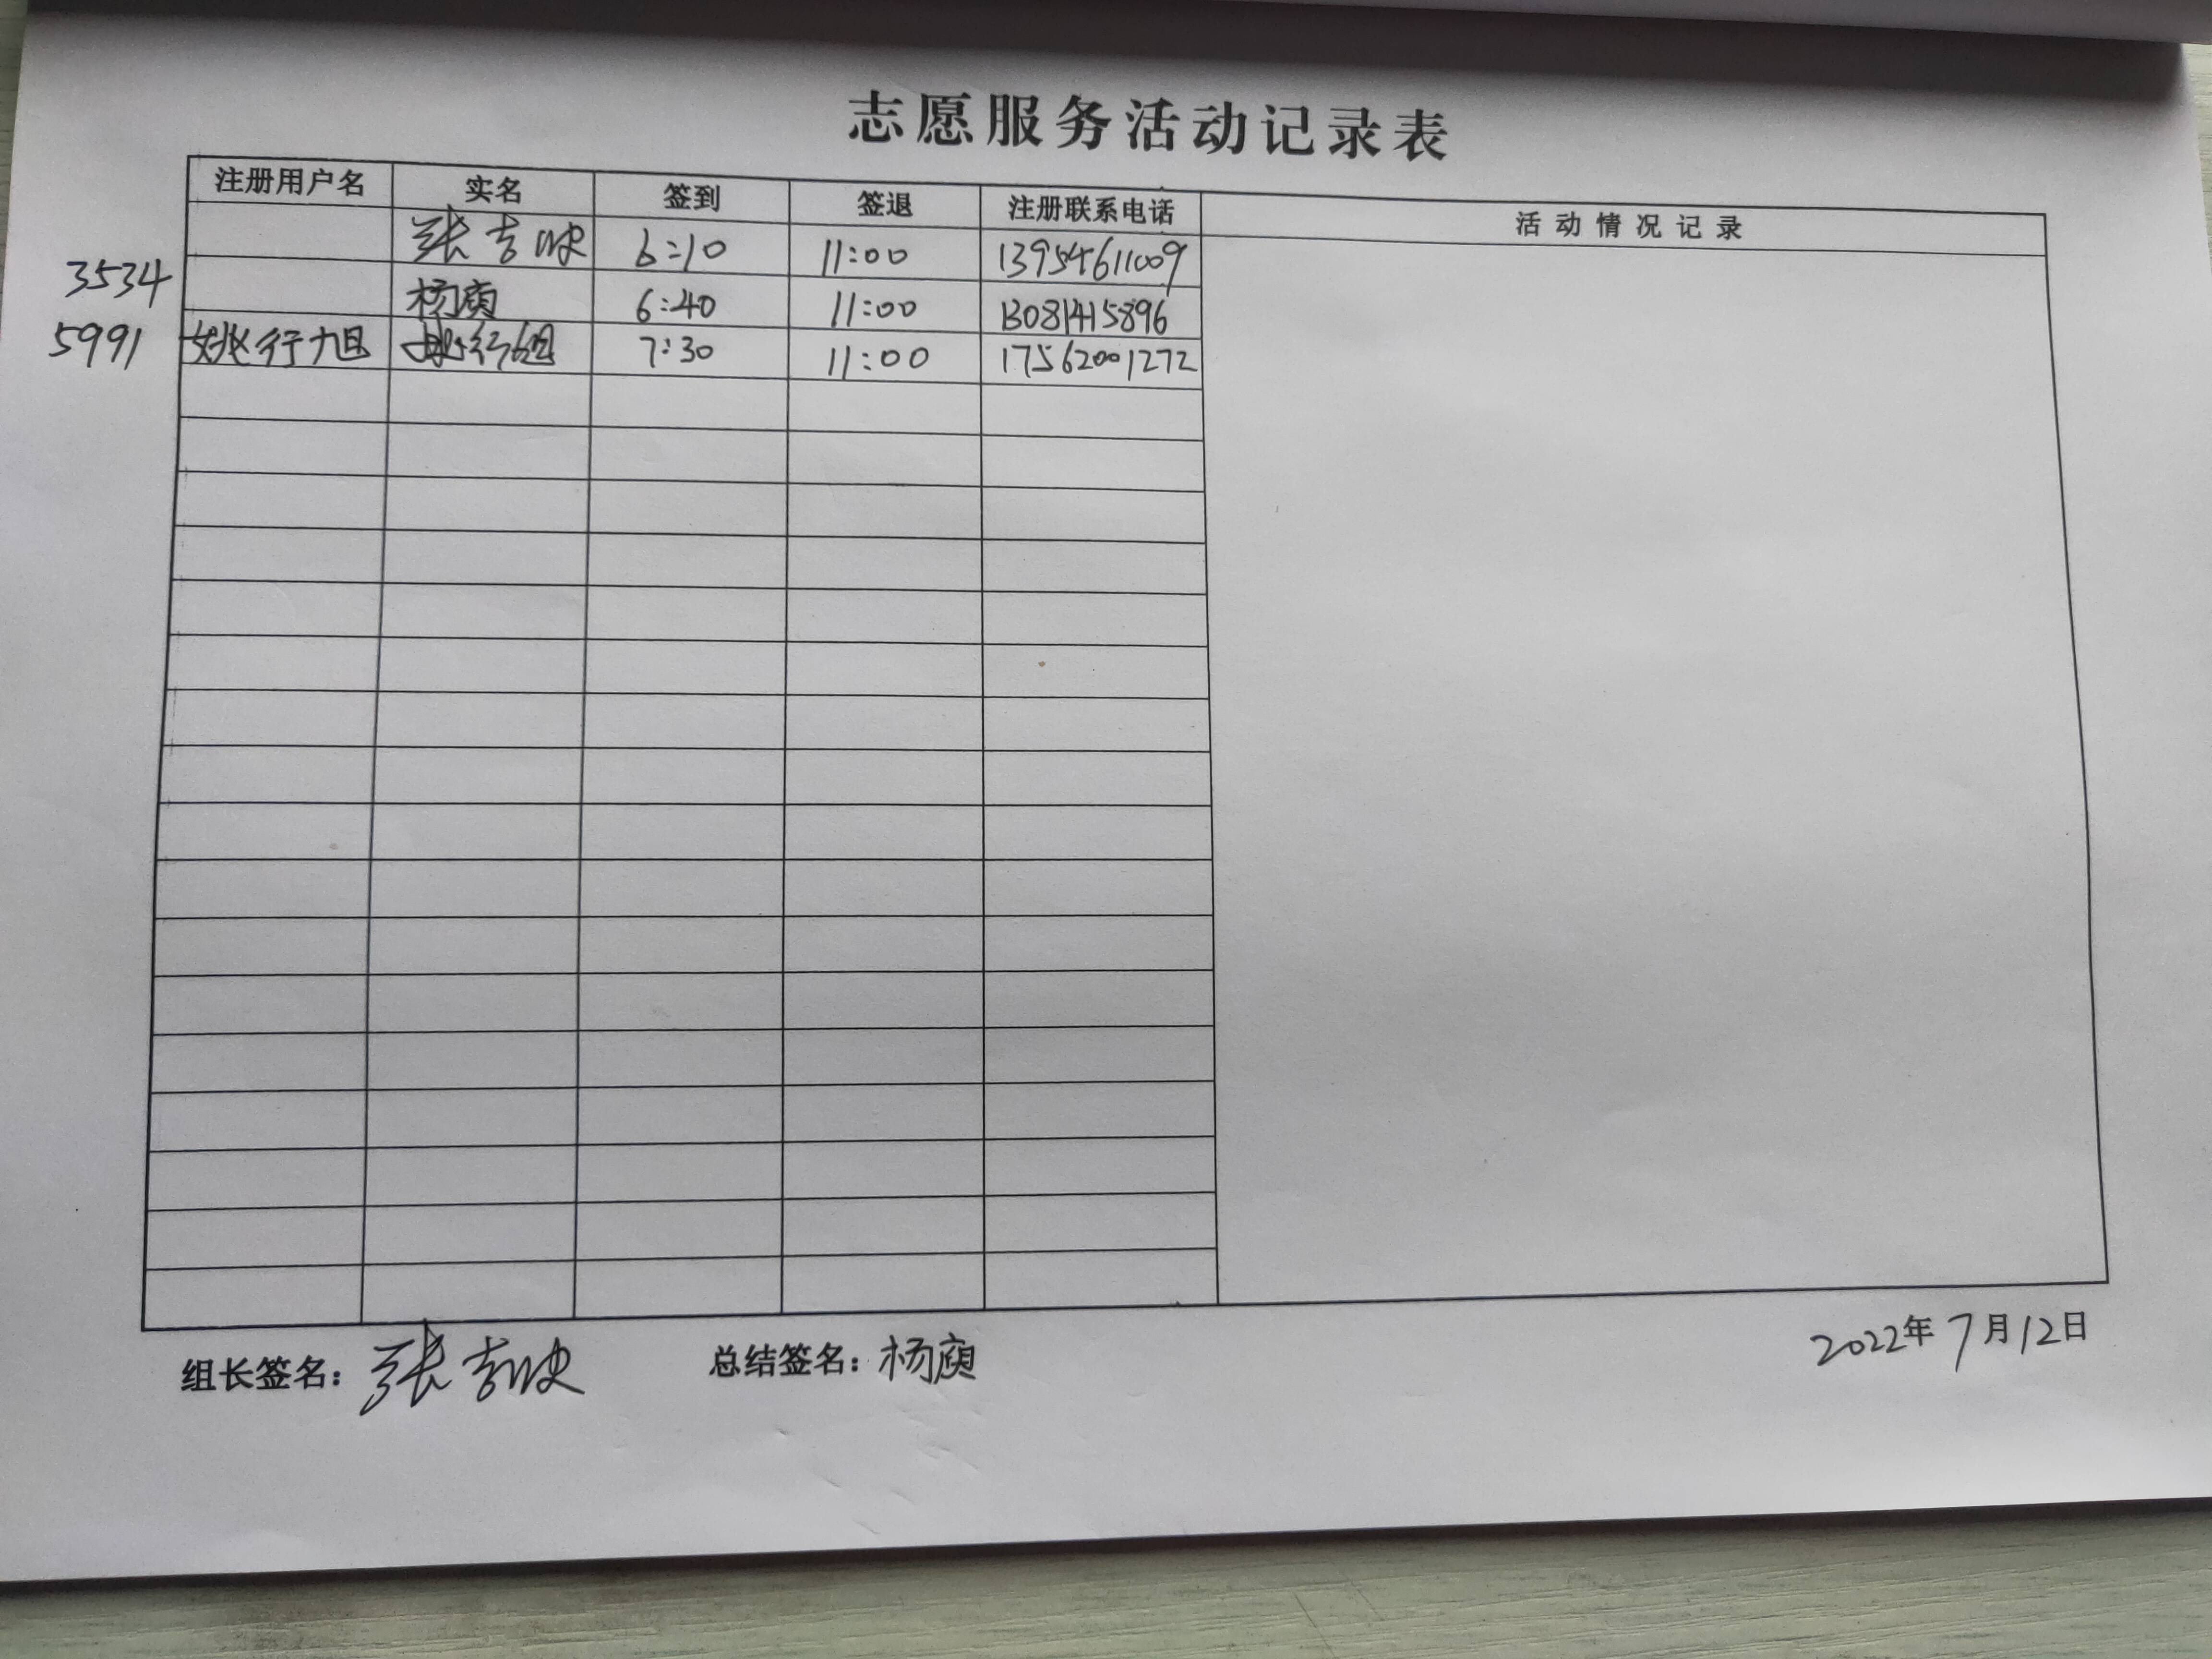 志愿服务活动记录表
注册用户名 实名 签到 签退 注册联系电话 活动情况记录
张吉 6:10 11:00 13954611009
3534 杨 6:40 11:00 13081415896
5991 姚行 姚行 7:30 11:00 17562001272
组长签名：张吉 总结签名：杨 2022年7月12日